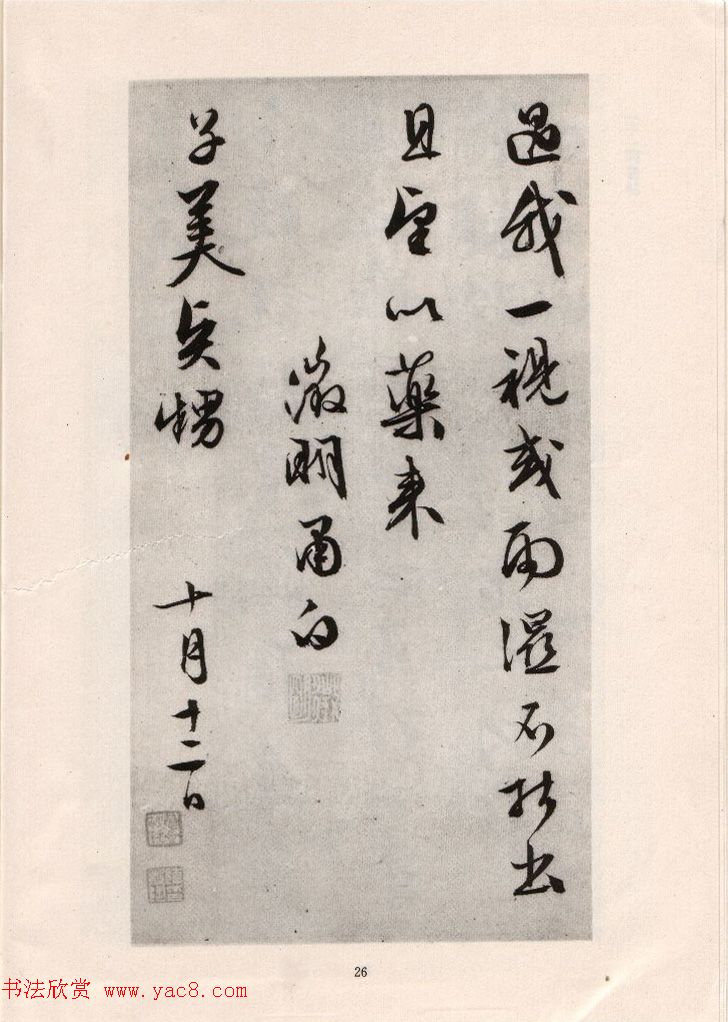 過我一視或雨濕不能出
且望以藥来
徵明肅白
子美貞甥
十月十二日
26
书法欣赏 www.yac8.com